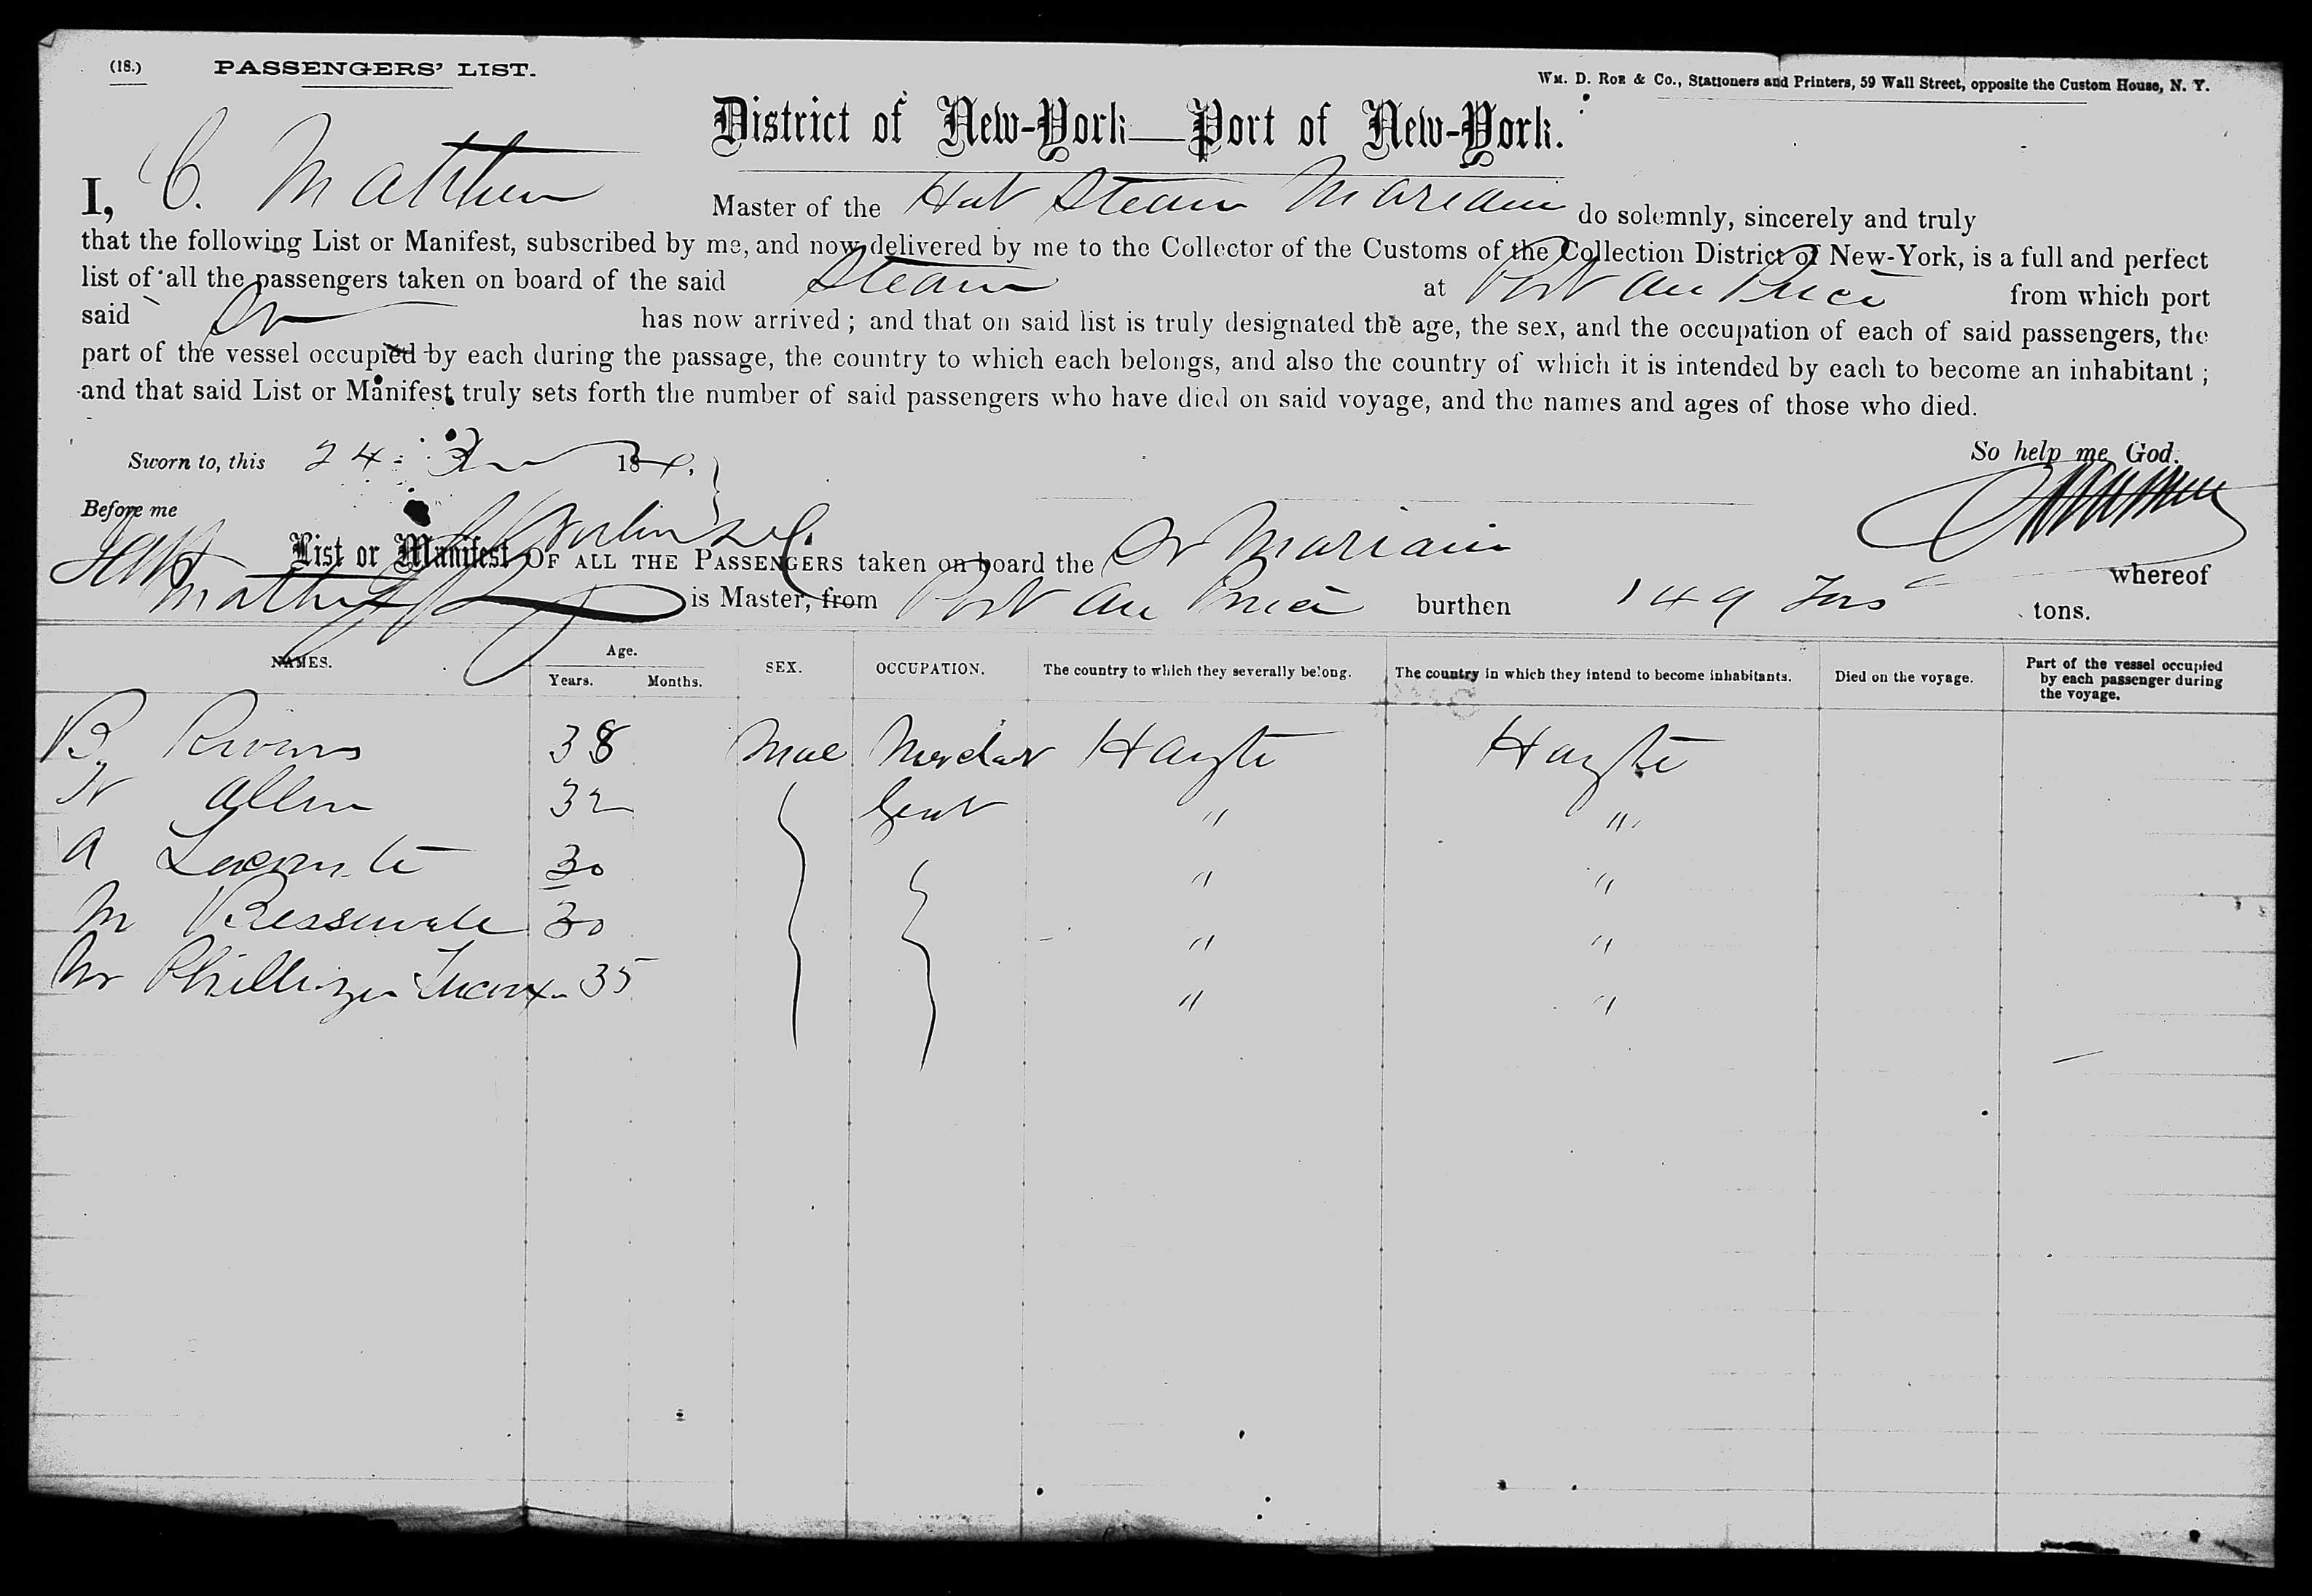 (18.) PASSENGERS' LIST.
WM. D. ROE & Co., Stationers and Printers, 59 Wall Street, opposite the Custom House, N. Y.
District of New-York—Port of New-York.
I, C. Matthew Master of the Steam Mariani do solemnly, sincerely and truly
that the following List or Manifest, subscribed by me, and now delivered by me to the Collector of the Customs of the Collection District of New-York, is a full and perfect
list of all the passengers taken on board of the said Steam at Port au Prince from which port
said has now arrived; and that on said list is truly designated the age, the sex, and the occupation of each of said passengers, the
part of the vessel occupied by each during the passage, the country to which each belongs, and also the country of which it is intended by each to become an inhabitant;
and that said List or Manifest truly sets forth the number of said passengers who have died on said voyage, and the names and ages of those who died.
Sworn to, this 24 18 So help me God.
Before me
List or Manifest OF ALL THE PASSENGERS taken on board the Mariani whereof
is Master, from Port au Prince burthen 149 Tons tons.
NAMES. Age. Years. Months. SEX. OCCUPATION. The country to which they severally belong. The country in which they intend to become inhabitants. Died on the voyage. Part of the vessel occupied by each passenger during the voyage.
B. 38 Male Hayti Hayti
Allen 32 Gent " "
A Lacomte 30 " "
M 30 " "
Mr 35 " "